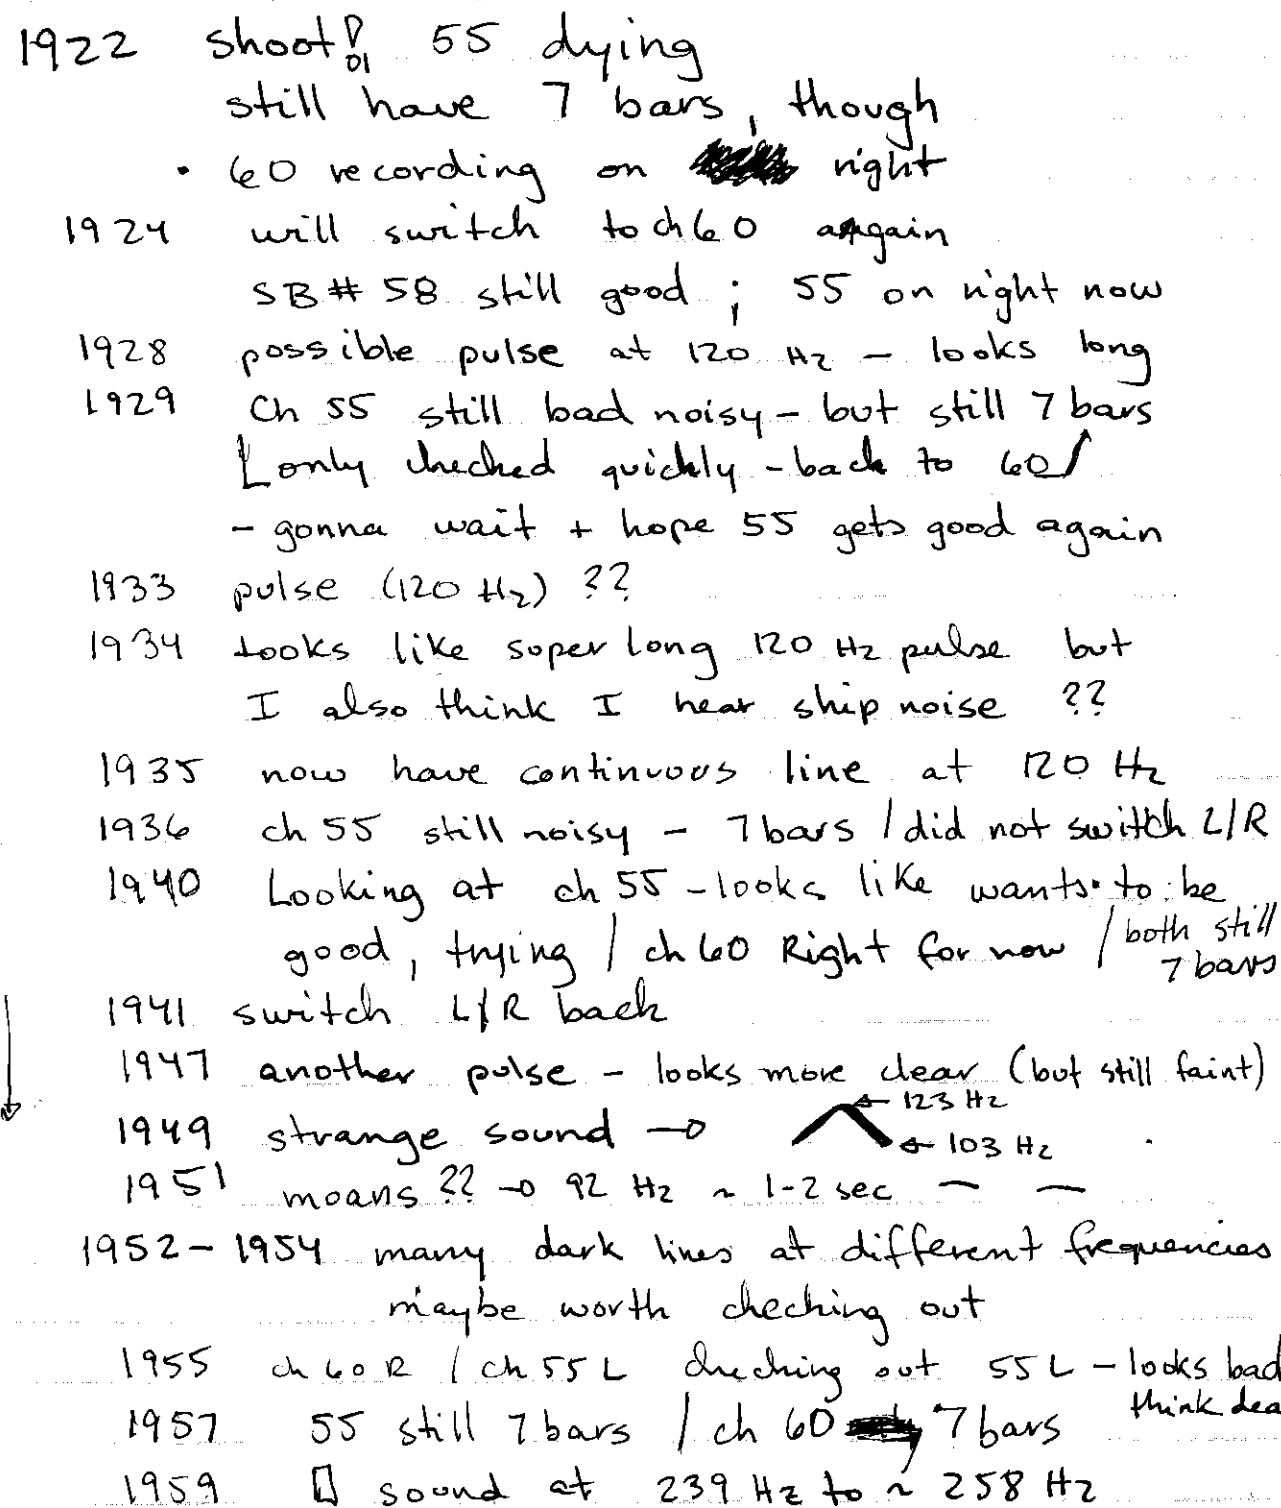 1922 shoot! 55 dying
still have 7 bars, though
• 60 recording on right
1924 will switch to ch 60 again
SB# 58 still good ; 55 on right now
1928 possible pulse at 120 Hz – looks long
1929 Ch 55 still bad noisy – but still 7 bars
only checked quickly – back to 60
– gonna wait + hope 55 gets good again
1933 pulse (120 Hz) ??
1934 Looks like super long 120 Hz pulse but
I also think I hear ship noise ??
1935 now have continuous line at 120 Hz
1936 ch 55 still noisy – 7 bars / did not switch L/R
1940 Looking at ch 55 – looks like wants to be
good, trying / ch 60 Right for now / both still
7 bars
1941 switch L/R back
1947 another pulse – looks more clear (but still faint)
← 123 Hz
1949 strange sound →
← 103 Hz
1951 moans ?? → 92 Hz ~ 1-2 sec — —
1952 – 1954 many dark lines at different frequencies
maybe worth checking out
1955 ch 60 R / ch 55 L checking out 55 L – looks bad
think dea
1957 55 still 7 bars / ch 60 7 bars
1959 sound at 239 Hz to ~ 258 Hz